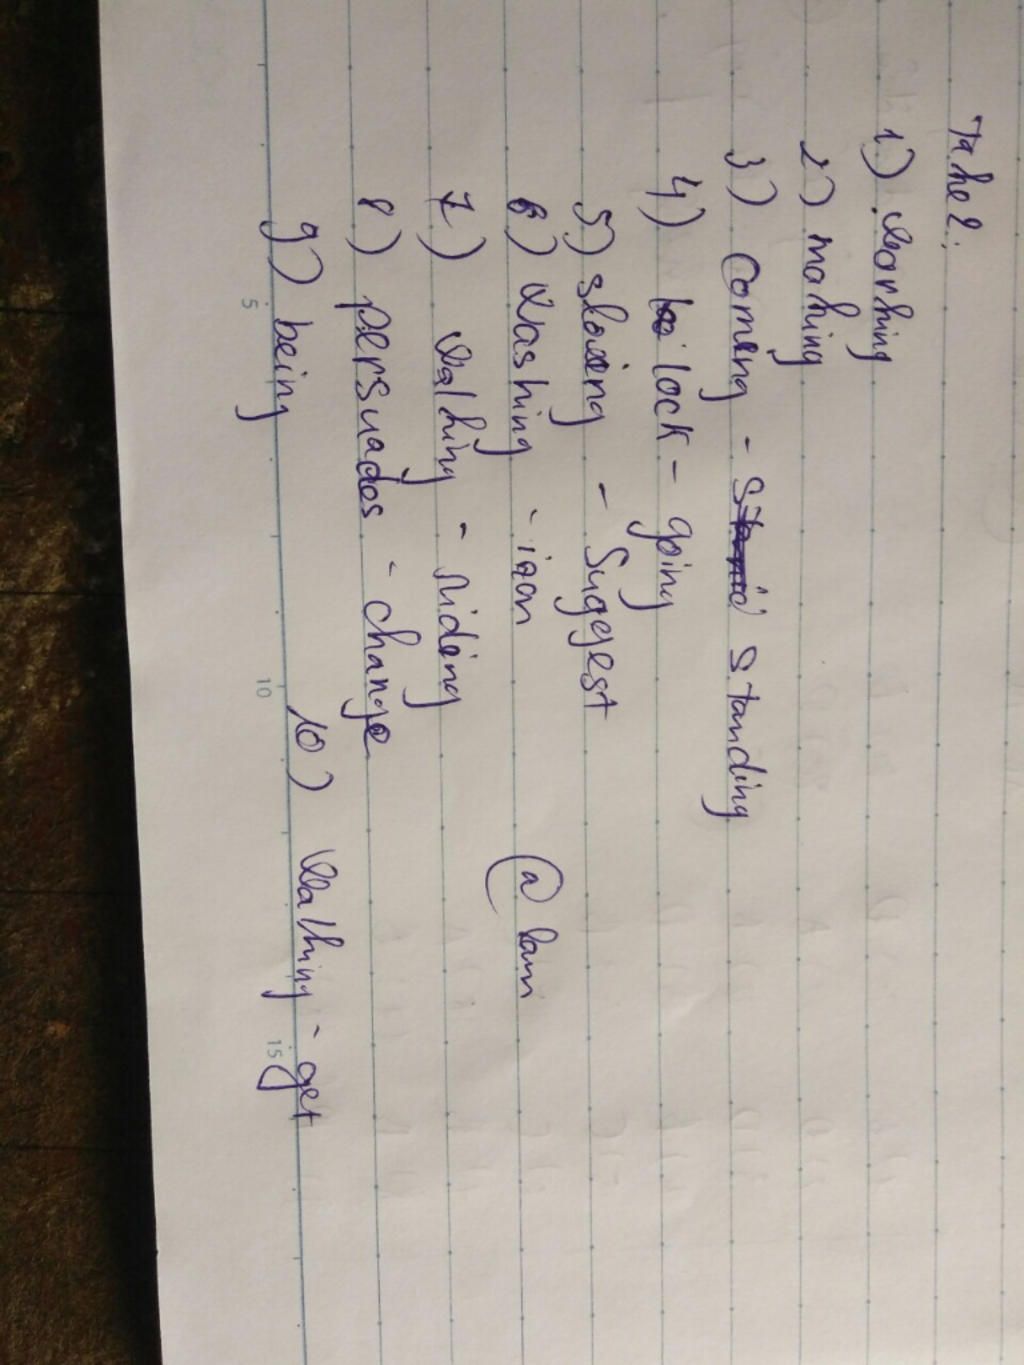 Take 2:
1) working
2) making
3) comeng - standing
4) lock - going
5) sloeing - Sugegest
6) washing - iron
7) walking - riding
8) persuades - change
9) being
10) walking - get
@ lam
5
10
15